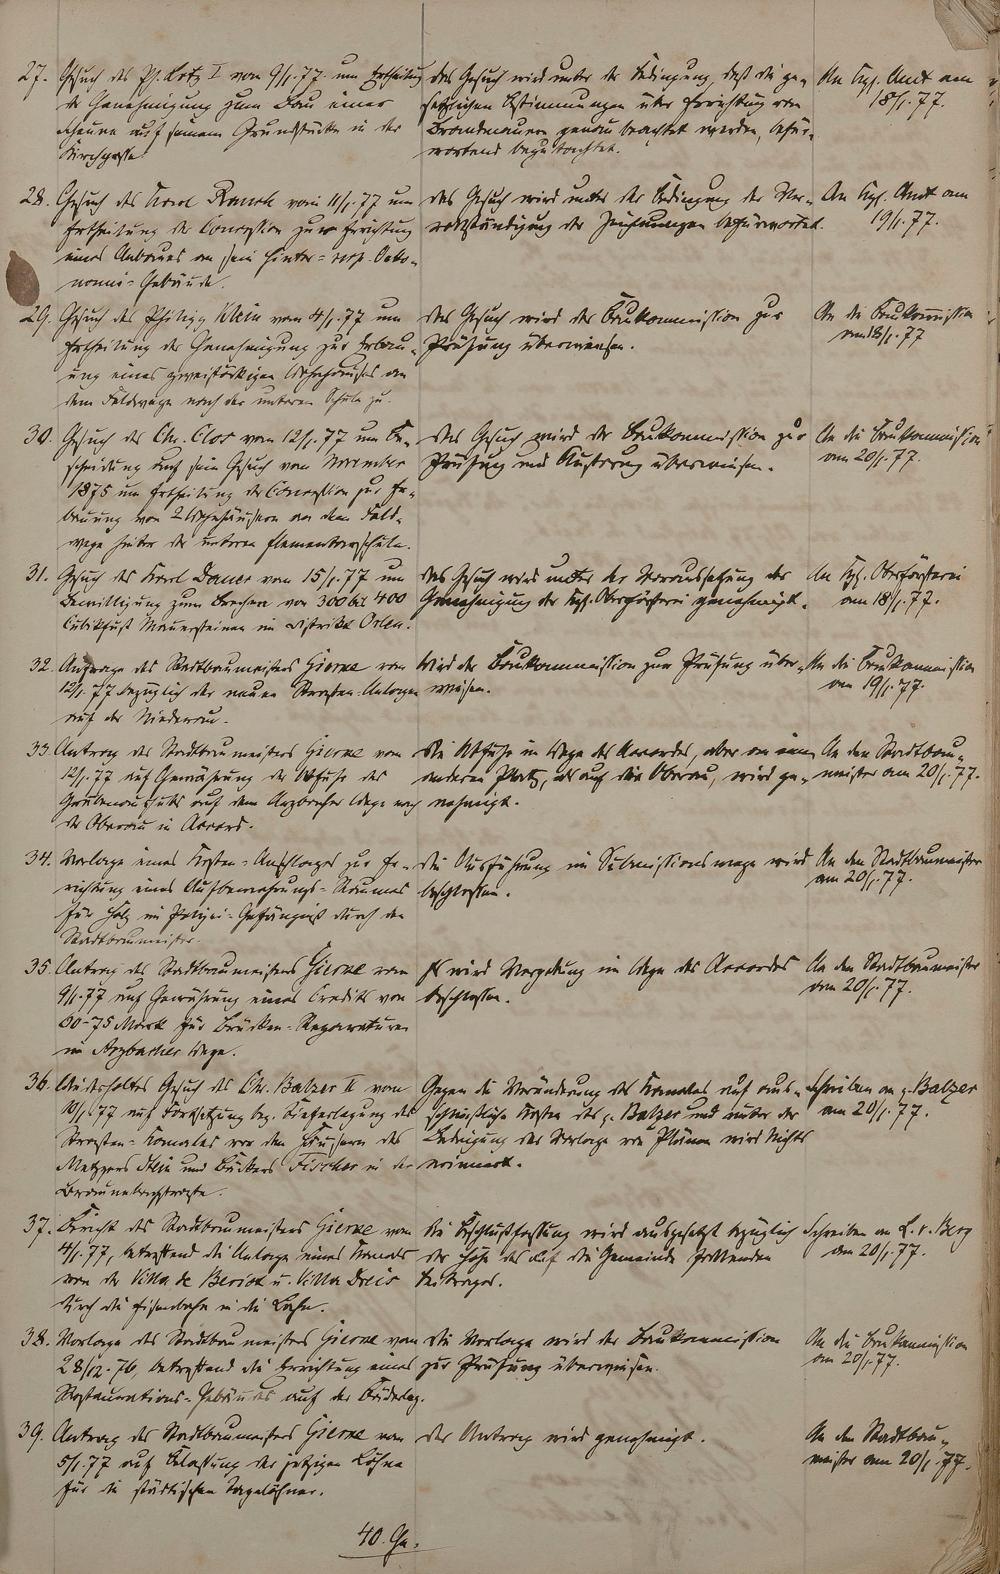 27. Gesuch des Ph. Lotz I vom 9/1.77 um Ertheilung
der Genehmigung zum Bau einer
Scheune auf seinem Grundstücke in der
Kirchgasse.
Das Gesuch wird unter der Bedingung, daß die ge-
setzlichen Bestimmungen über Errichtung von
Brandmauern genau beachtet werden, befür-
wortend begutachtet.
An Kgl. Amt am
18/1.77.
28. Gesuch des Karl Rauch vom 11/1.77 um
Ertheilung der Concession zur Errichtung
eines Anbaues an sein Hinter- resp. Oeko-
nomie-Gebäude.
Das Gesuch wird unter der Bedingung der Ver-
vollständigung der Zeichnungen befürwortet.
An Kgl. Amt am
19/1.77.
29. Gesuch des Philipp Klein vom 4/1.77 um
Ertheilung der Genehmigung zur Erbau-
ung eines zweistöckigen Wohnhauses an
dem Feldwege nach der unteren Schule zu.
Das Gesuch wird der Baukommission zur
Prüfung überwiesen.
An die Baukommission
am 18/1.77
30. Gesuch des Chr. Clos vom 12/1.77 um Be-
scheidung auf sein Gesuch vom November
1875 um Ertheilung der Concession zur Er-
bauung von 2 Wohnhäusern an dem Feld-
wege hinter der unteren Elementarschule.
Das Gesuch wird der Baukommission zur
Prüfung und Äußerung überwiesen.
An die Baukommission
am 20/1.77.
31. Gesuch des Karl Dauer vom 15/1.77 um
Bewilligung zum Brechen von 300 bis 400
Cubikfuß Mauersteinen im Distrikt Orlen.
Das Gesuch wird unter der Voraussetzung der
Genehmigung der Kgl. Oberförsterei genehmigt.
An Kgl. Oberförsterei
am 18/1.77.
32. Anfrage des Stadtbaumeisters Gierse vom
12/1.77 bezüglich der neuen Straßen-Anlagen
auf der Niederau.
Wird der Baukommission zur Prüfung über-
wiesen.
An die Baukommission
am 19/1.77.
33. Antrag des Stadtbaumeisters Gierse vom
12/1.77 auf Gewährung der Abfuhr des
Grabenaufwurfs auf dem Arzbacher Wege nach
der Oberau in Accord.
Die Abfuhr im Wege des Accordes, aber an einen
anderen Platz, als auf die Oberau, wird ge-
nehmigt.
An den Stadtbau-
meister am 20/1.77.
34. Vorlage eines Kosten-Anschlages zur Er-
richtung eines Aufbewahrungs-Raumes
für Holz im Polizei-Gefängniß durch den
Stadtbaumeister.
Die Ausführung im Submissionswege wird
beschlossen.
An den Stadtbaumeister
am 20/1.77.
35. Antrag des Stadtbaumeisters Gierse vom
9/1.77 auf Gewährung eines Credits von
60-75 Mark für Brücken-Reparaturen
im Arzbacher Wege.
Es wird Vergebung im Wege des Accordes
beschlossen.
An den Stadtbaumeister
am 20/1.77.
36. Wiederholtes Gesuch des Ch. Balzer II vom
10/1.77 auf Fortsetzung bez. Tieferlegung des
Straßen-Kanales vor den Häusern des
Metzgers Stein und Bäckers Fischer in der
Braunebergstraße.
Gegen die Veränderung des Kanales auf aus-
schließliche Kosten des p. Balzer und unter der
Bedingung der Vorlage von Plänen wird Nichts
erinnert.
Schreiben an p. Balzer
am 20/1.77.
37. Bericht des Stadtbaumeisters Gierse vom
4/1.77, betreffend die Anlage eines Kanals
von der Villa de Beriot u. Villa Dreis
durch die Eisenbahn in die Lahn.
Die Beschlußfassung wird ausgesetzt bezüglich
der Höhe des auf die Gemeinde fallenden
Beitrages.
Schreiben an L. v. Berg
am 20/1.77.
38. Vorlage des Stadtbaumeisters Gierse vom
28/12.76, betreffend die Errichtung eines
Restaurations-Gebäudes auf der Bäderley.
Die Vorlage wird der Baukommission
zur Prüfung überwiesen.
An die Baukommission
am 20/1.77.
39. Antrag des Stadtbaumeisters Gierse vom
5/1.77 auf Belassung der jetzigen Löhne
für die städtischen Tagelöhner.
Der Antrag wird genehmigt.
An den Stadtbau-
meister am 20/1.77.
40. Ge.